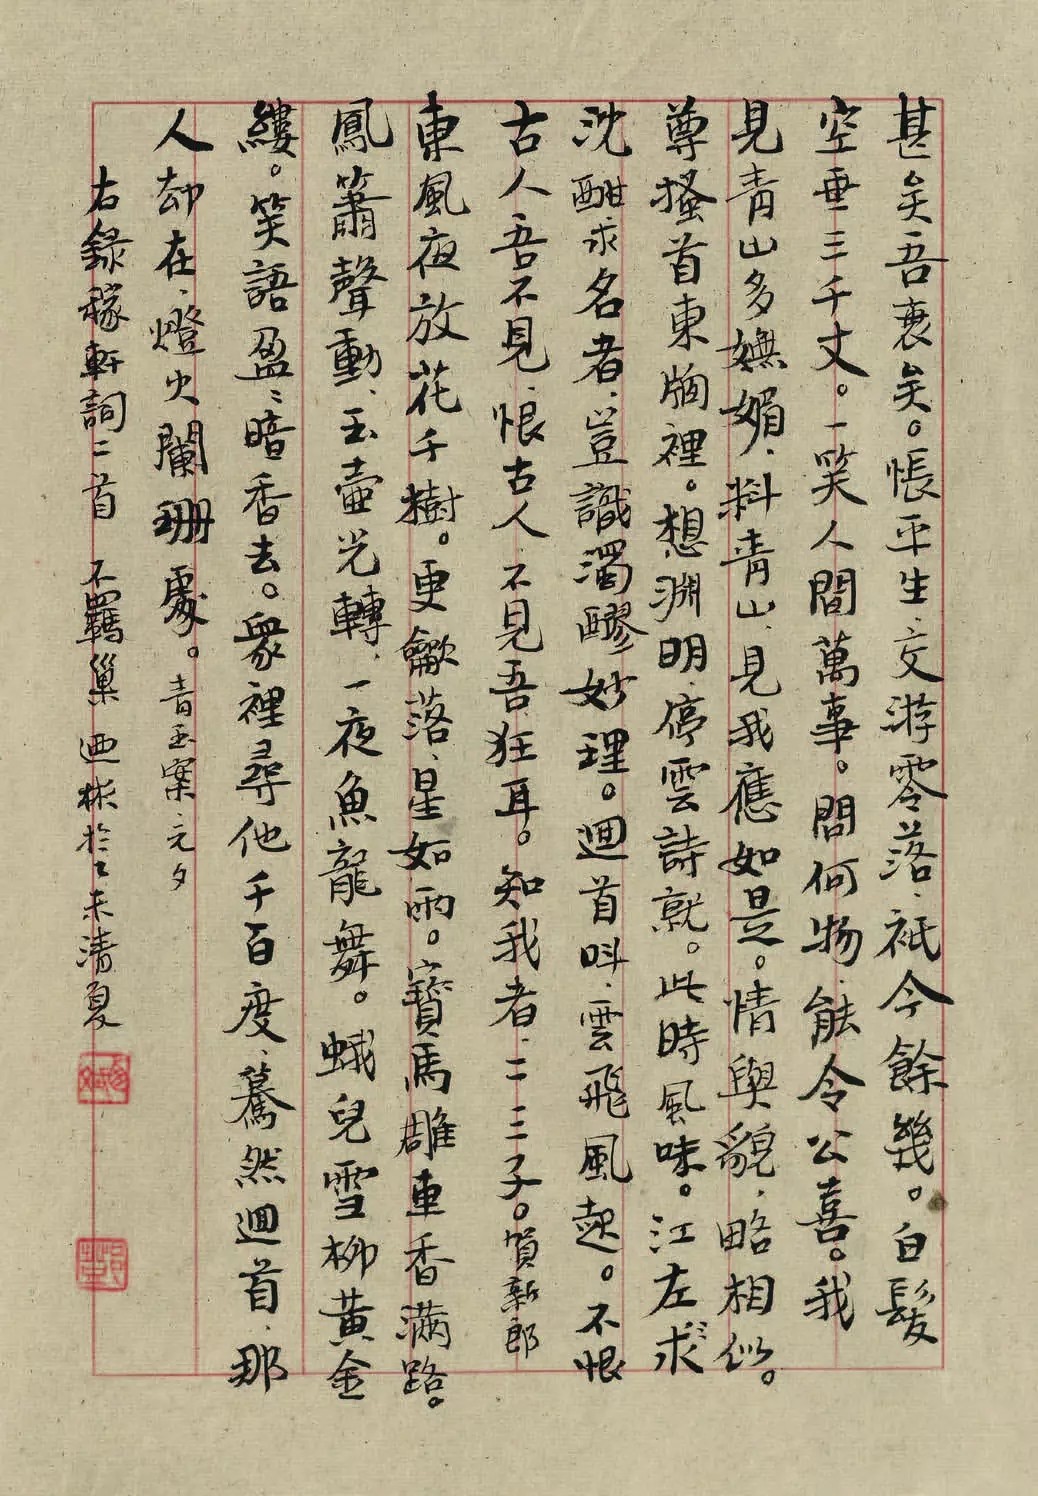 甚矣吾衰矣。悵平生、交游零落、衹今餘幾。白髮
空垂三千丈。一笑人間萬事。問何物、能令公喜。我
見青山多嫵媚、料青山、見我應如是。情與貌、略相似。
尊搔首東牕裡。想淵明、停雲詩就。此時風味。江左求
沈酣求名者、豈識濁醪妙理。迴首叫、雲飛風起。不恨
古人吾不見、恨古人、不見吾狂耳。知我者、二三子。賀新郎
東風夜放花千樹。更龡落、星如雨。寶馬雕車香滿路。
鳳簫聲動、玉壺光轉、一夜魚龍舞。蛾兒雪柳黃金
縷。笑語盈〻暗香去。衆裡尋他千百度、驀然迴首、那
人却在、燈火闌珊處。青玉案 元夕
右錄稼軒詞二首 不羈巢 迺彬於乙未清夏